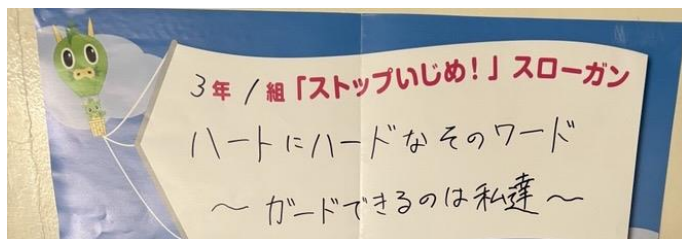 3年1組「ストップいじめ!」スローガン
ハートにハードなそのワード
～ガードできるのは私達～